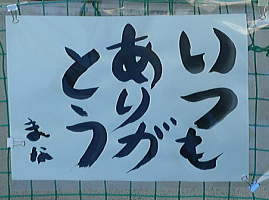 いつも
ありが
とう
まな